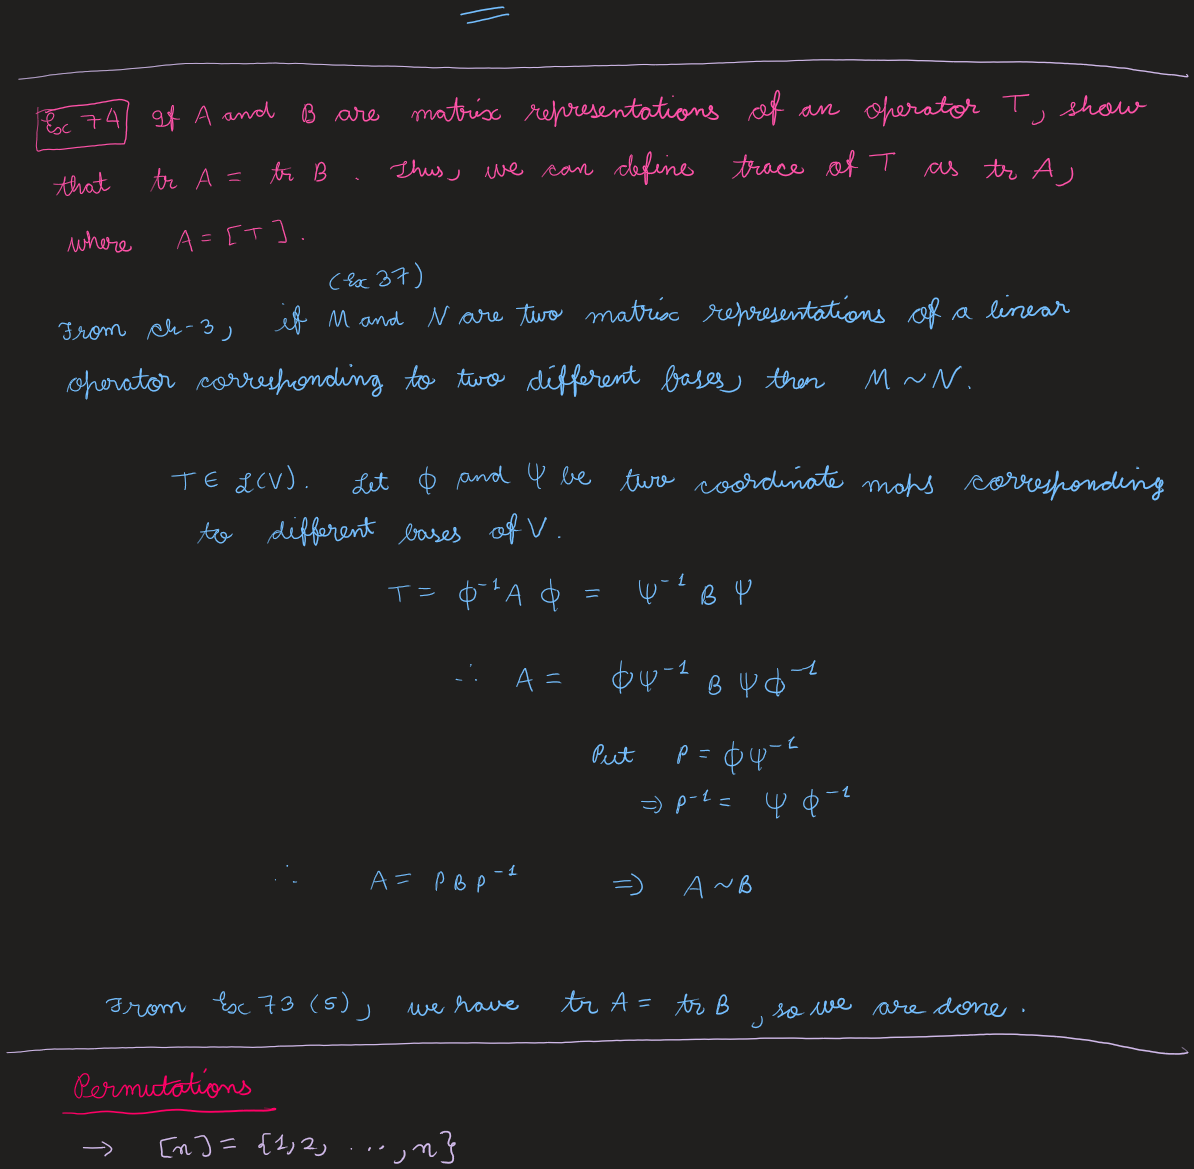 Ex 74 If A and B are matrix representations of an operator T, show
that tr A = tr B. Thus, we can define trace of T as tr A,
where A = [T].
(Ex 37)
From ch-3, if M and N are two matrix representations of a linear
operator corresponding to two different bases, then M ~ N.
T ∈ ℒ(V). Let ϕ and Ψ be two coordinate maps corresponding
to different bases of V.
T = ϕ⁻¹ A ϕ = Ψ⁻¹ B Ψ
∴ A = ϕΨ⁻¹ B Ψϕ⁻¹
Put P = ϕΨ⁻¹
⇒ P⁻¹ = Ψ ϕ⁻¹
∴ A = P B P⁻¹ ⇒ A ~ B
From Ex 73 (5), we have tr A = tr B, so we are done.
Permutations
→ [n] = {1, 2, ..., n}